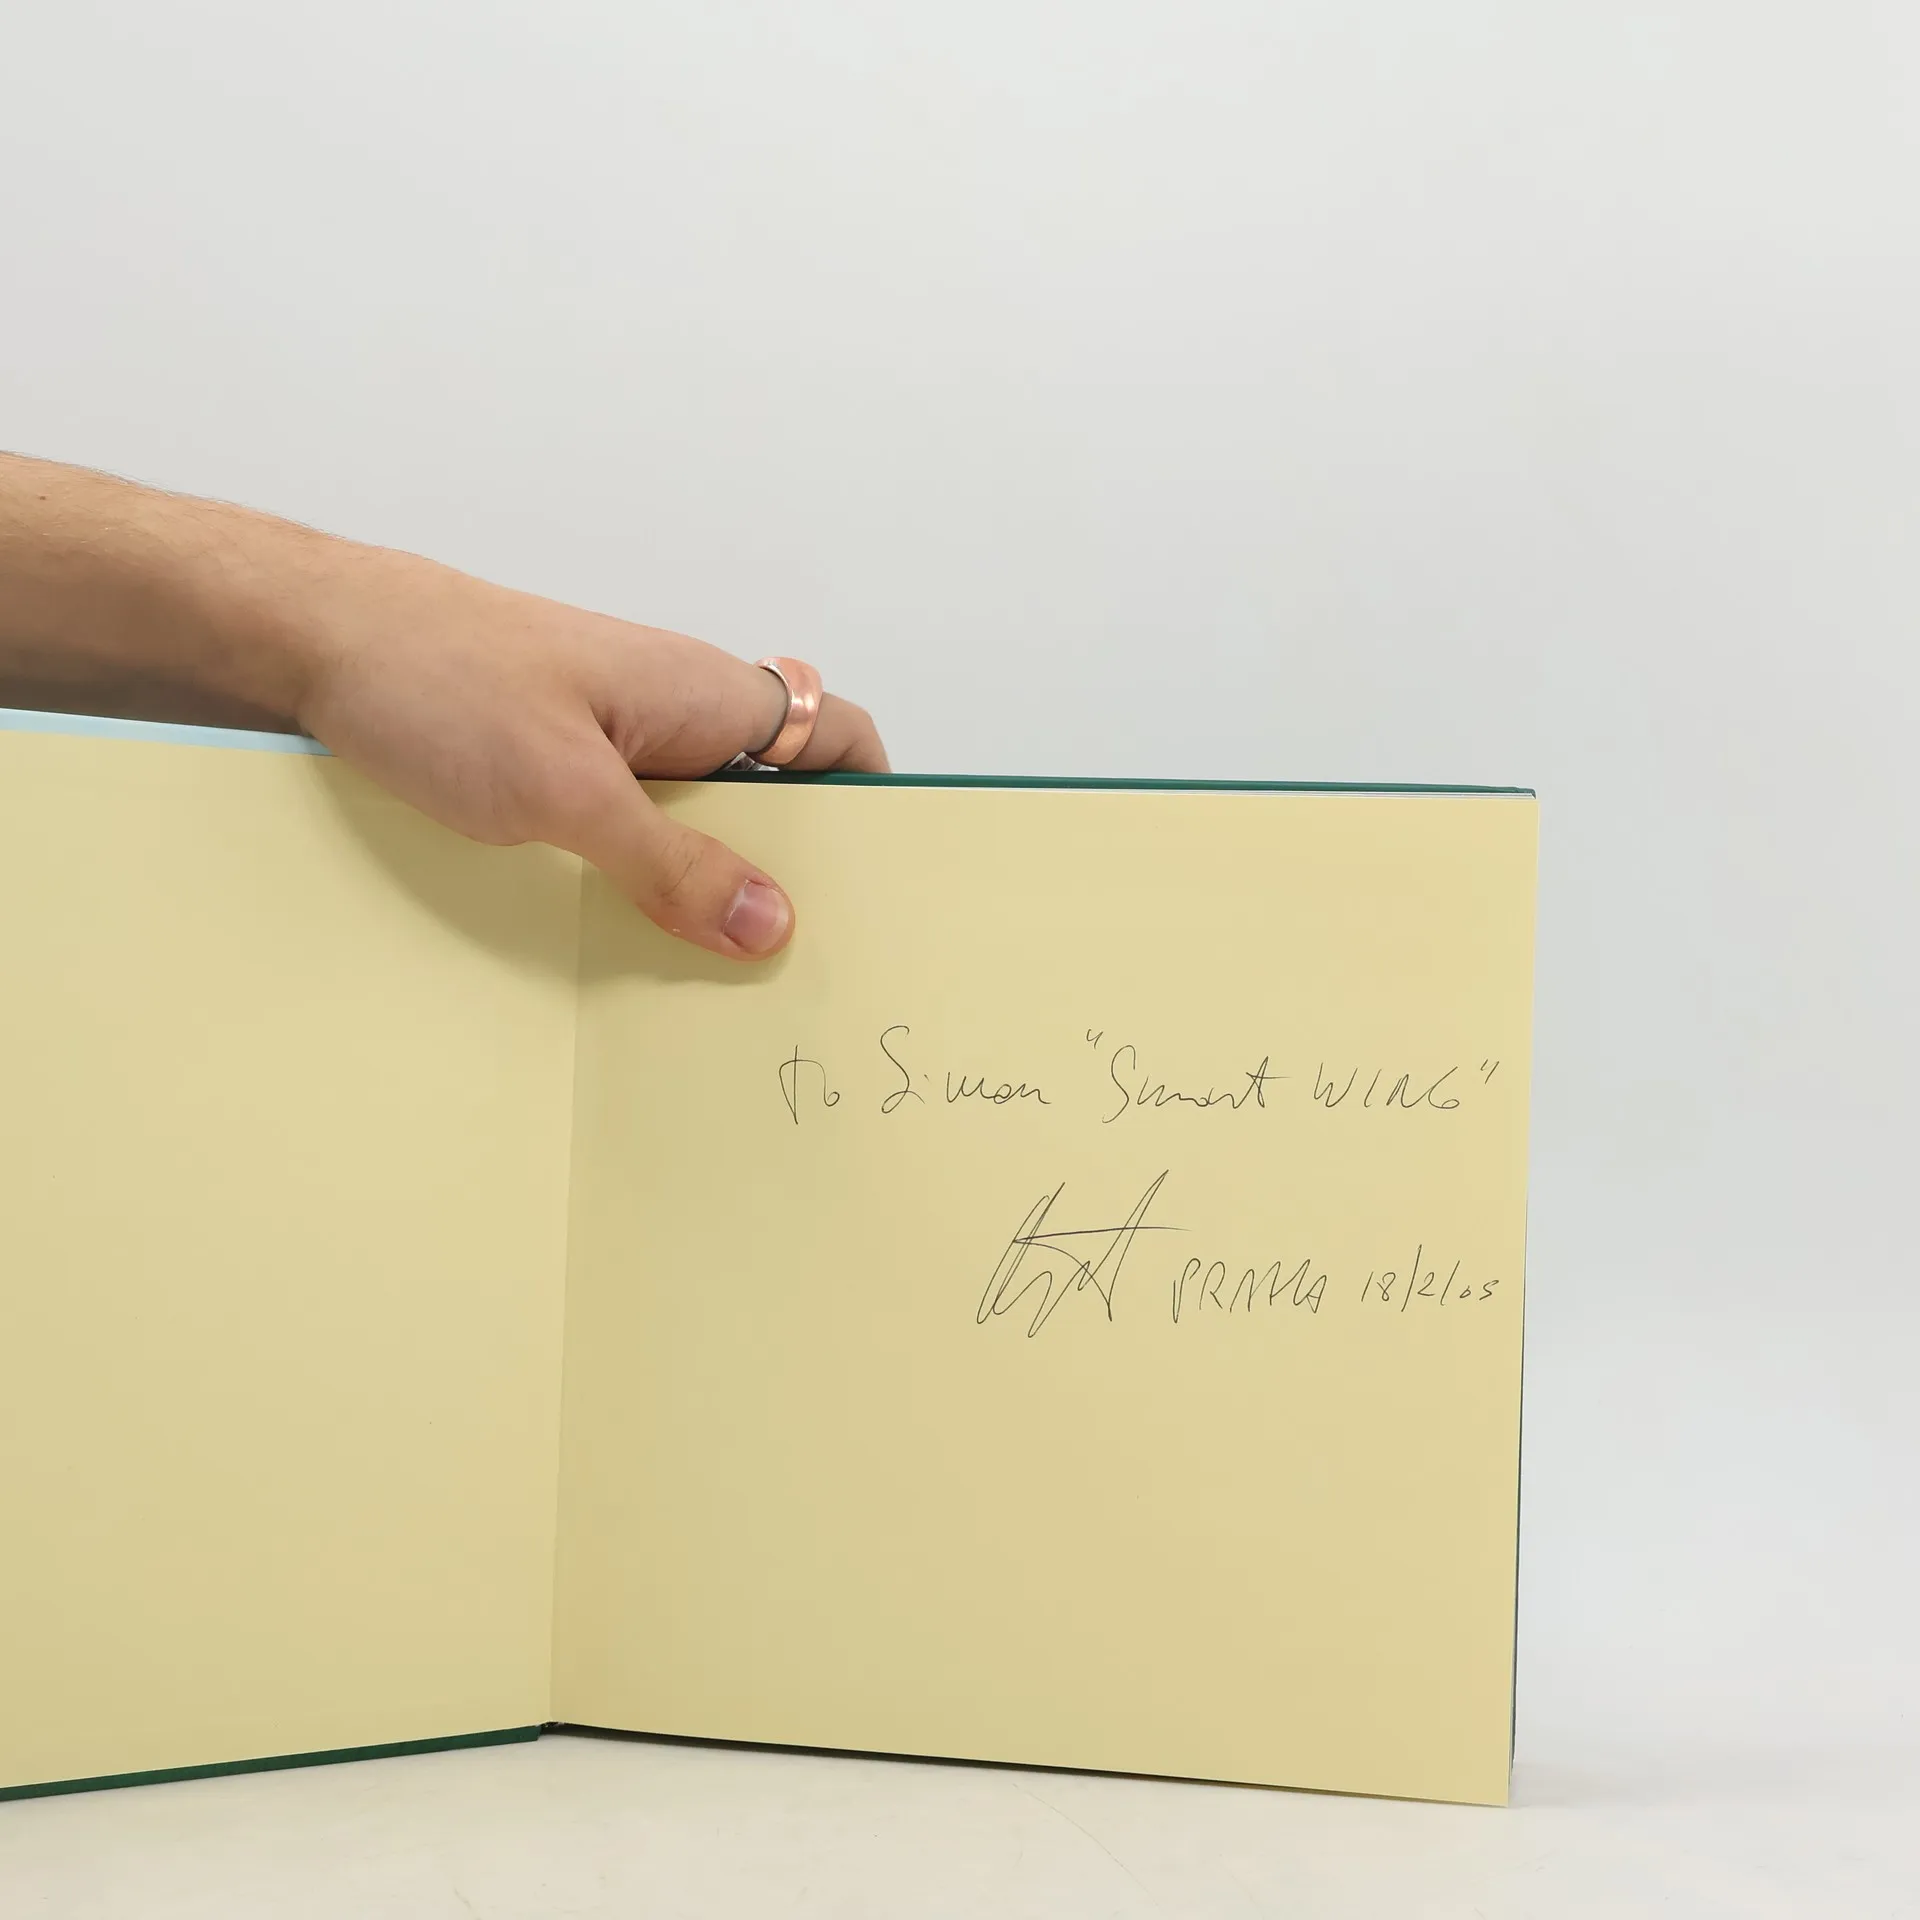 to Simon "Smart WING"
PRAHA 18/2/05